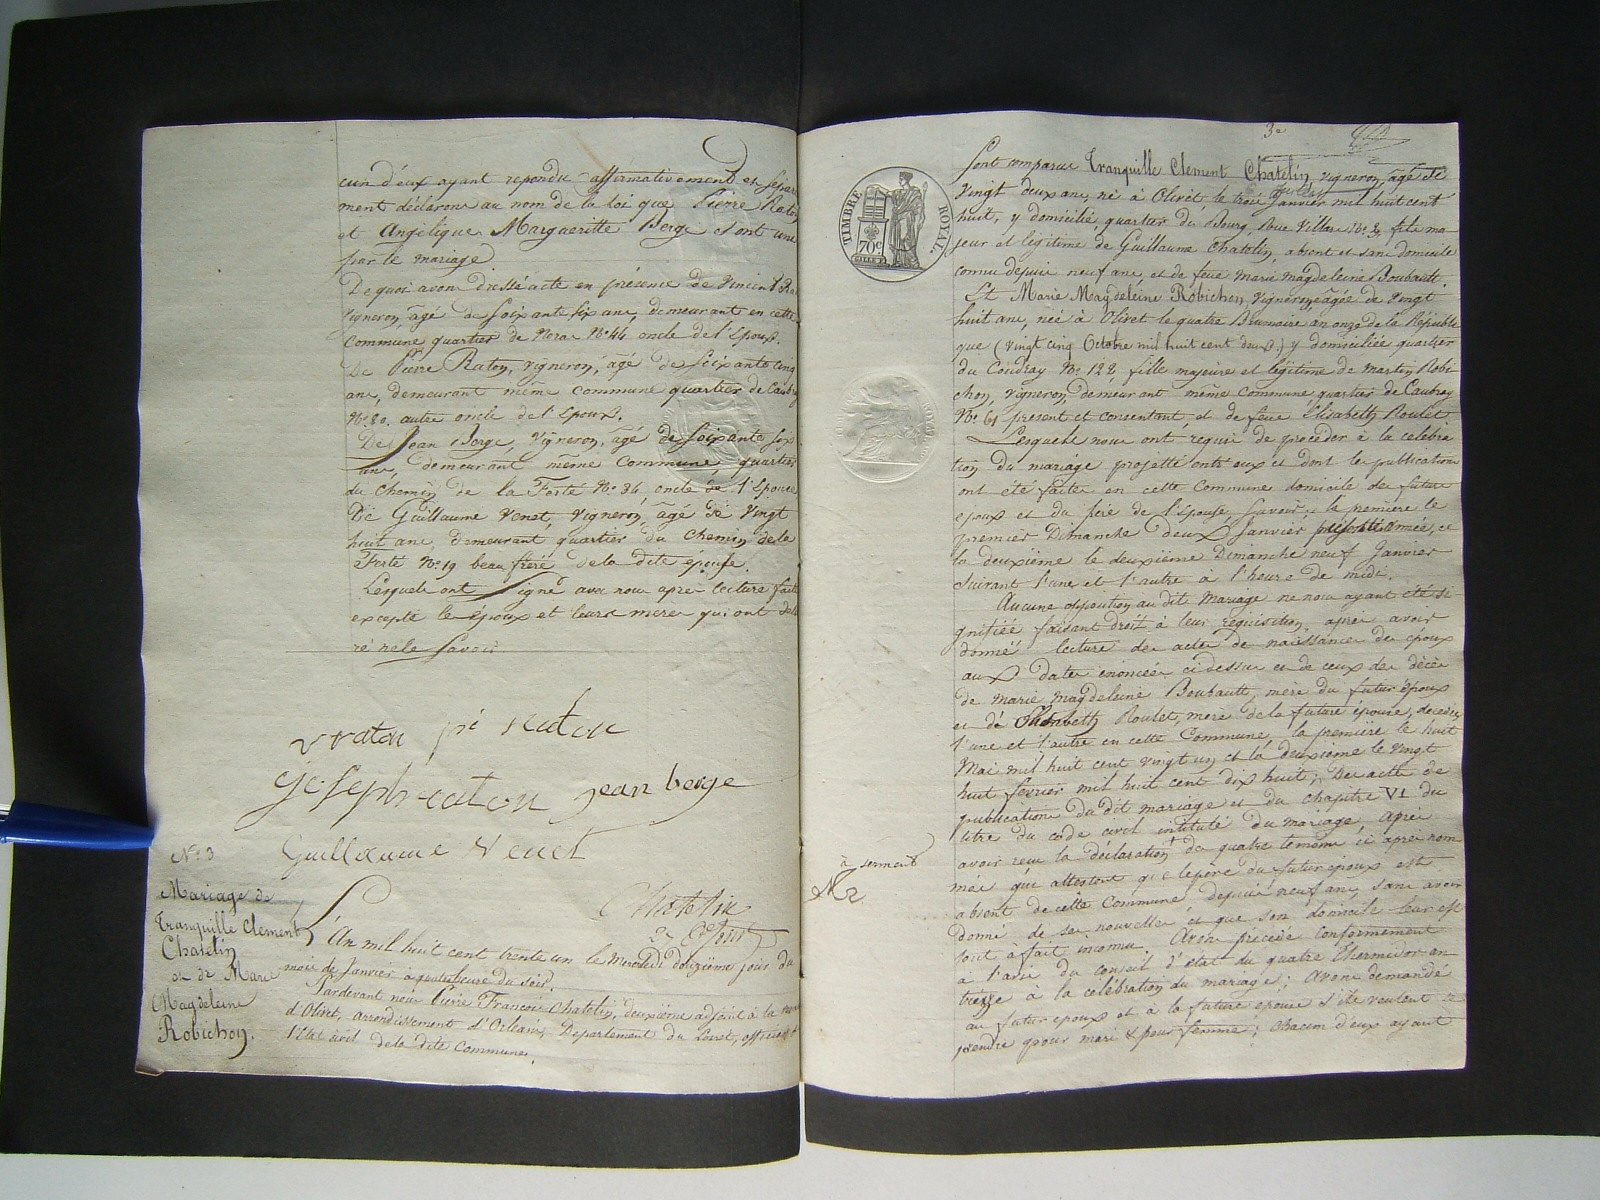 cun d'eux ayant repondu affirmativement et séparé
ment déclarons au nom de la loi que Pierre Raton
et Angélique Margueritte Berge sont unis
par le mariage
De quoi avons dressé acte en présence de Vincent Ra
vigneron, âgé de soixante six ans, demeurant en cette
commune quartier de No. 44 oncle de l'Epoux.
De Pierre Raton, vigneron, âgé de soixante cinq
ans, demeurant même commune quartier de Caubray
No. 80. autre oncle de l'Epoux.
De Jean Berge, vigneron, âgé de soixante six
ans, demeurant même commune, quartier
du chemin de la Ferté No. 34 oncle de l'Epouse
De Guillaume Venet, vigneron, âgé de vingt
huit ans, demeurant quartier du Chemin de la
Ferté No. 19 beau frère de la dite épouse.
Lesquels ont signé avec nous après lecture faite
excepté les époux et leurs mères qui ont décla
ré ne le savoir
v raton pi Raton
joseph raton jean berge
Guillaume Venet
Chatelin
No. 3
Mariage de
Tranquille Clement
Chatelin
et de Marie
Magdeleine
Robichon.
L'An mil huit cent trente un le Mercredi douzième jour du
mois de Janvier à quatre heure du soir.
Pardevant nous Pierre François Chatelin, deuxième adjoint à la mairie
d'Olivet, arrondissement d'Orléans, Departement du Loiret, officier de
l'Etat civil de la dite Commune.
3e
TIMBRE ROYAL.
70c
Sont comparus Tranquille Clement Chatelin, vigneron, âgé de
vingt deux ans, né à Olivet le trois Janvier mil huit cent
huit, y domicilié quartier du Bourg, Rue Villar No. 8, fils ma
jeur et légitime de Guillaume Chatelin, absent et sans domicile
connu depuis neuf ans, et de feue Marie Magdeleine Boubault.
Et Marie Magdeleine Robichon, vigneronne, âgée de vingt
huit ans, née à Olivet le quatre Brumaire an onze de la Républi
que (vingt cinq Octobre mil huit cent deux) y domiciliée quartier
du Coudray No. 128 fille majeure et légitime de Martin Robi
chon, vigneron, demeurant même Commune quartier de Caubray
No. 61 présent et consentant, et de feue Elisabeth Roulet
Lesquels nous ont requis de procéder à la célébra
tion du mariage projetté entr'eux et dont les publications
ont été faites en cette Commune domicile des futurs
époux et du père de l'Epouse, savoir: la première le
premier Dimanche deux Janvier présente année, et
la deuxième le deuxième Dimanche neuf Janvier
suivant l'une et l'autre à l'heure de midi.
Aucune opposition au dit Mariage ne nous ayant été si
gnifiée faisant droit à leur réquisition, après avoir
donné lecture des actes de naissance des époux
aux dates énoncées ci dessus et de ceux des décès
de Marie Magdeleine Boubault, mère du futur époux
et de Elisabeth Roulet, mère de la future épouse, décédées
l'une et l'autre en cette Commune, la première le huit
Mai mil huit cent vingt un et la deuxième le vingt
huit février mil huit cent dix huit; Des actes de
publications du dit mariage et du chapitre VI du
titre du code civil intitulé du mariage. Après
avoir reçu la déclaration + de quatre témoins ci après nom
à serment
més qui attestent que le père du futur époux est
absent de cette Commune depuis neuf ans, sans avoir
donné de ses nouvelles et que son domicile leur est
tout à fait inconnu. Avons procédé conformément
à l'avis du conseil d'état du quatre thermidor an
treize à la célébration du mariage; Avons demandé
au futur époux et à la future épouse s'ils veulent se
prendre pour mari & pour femme; chacun d'eux ayant